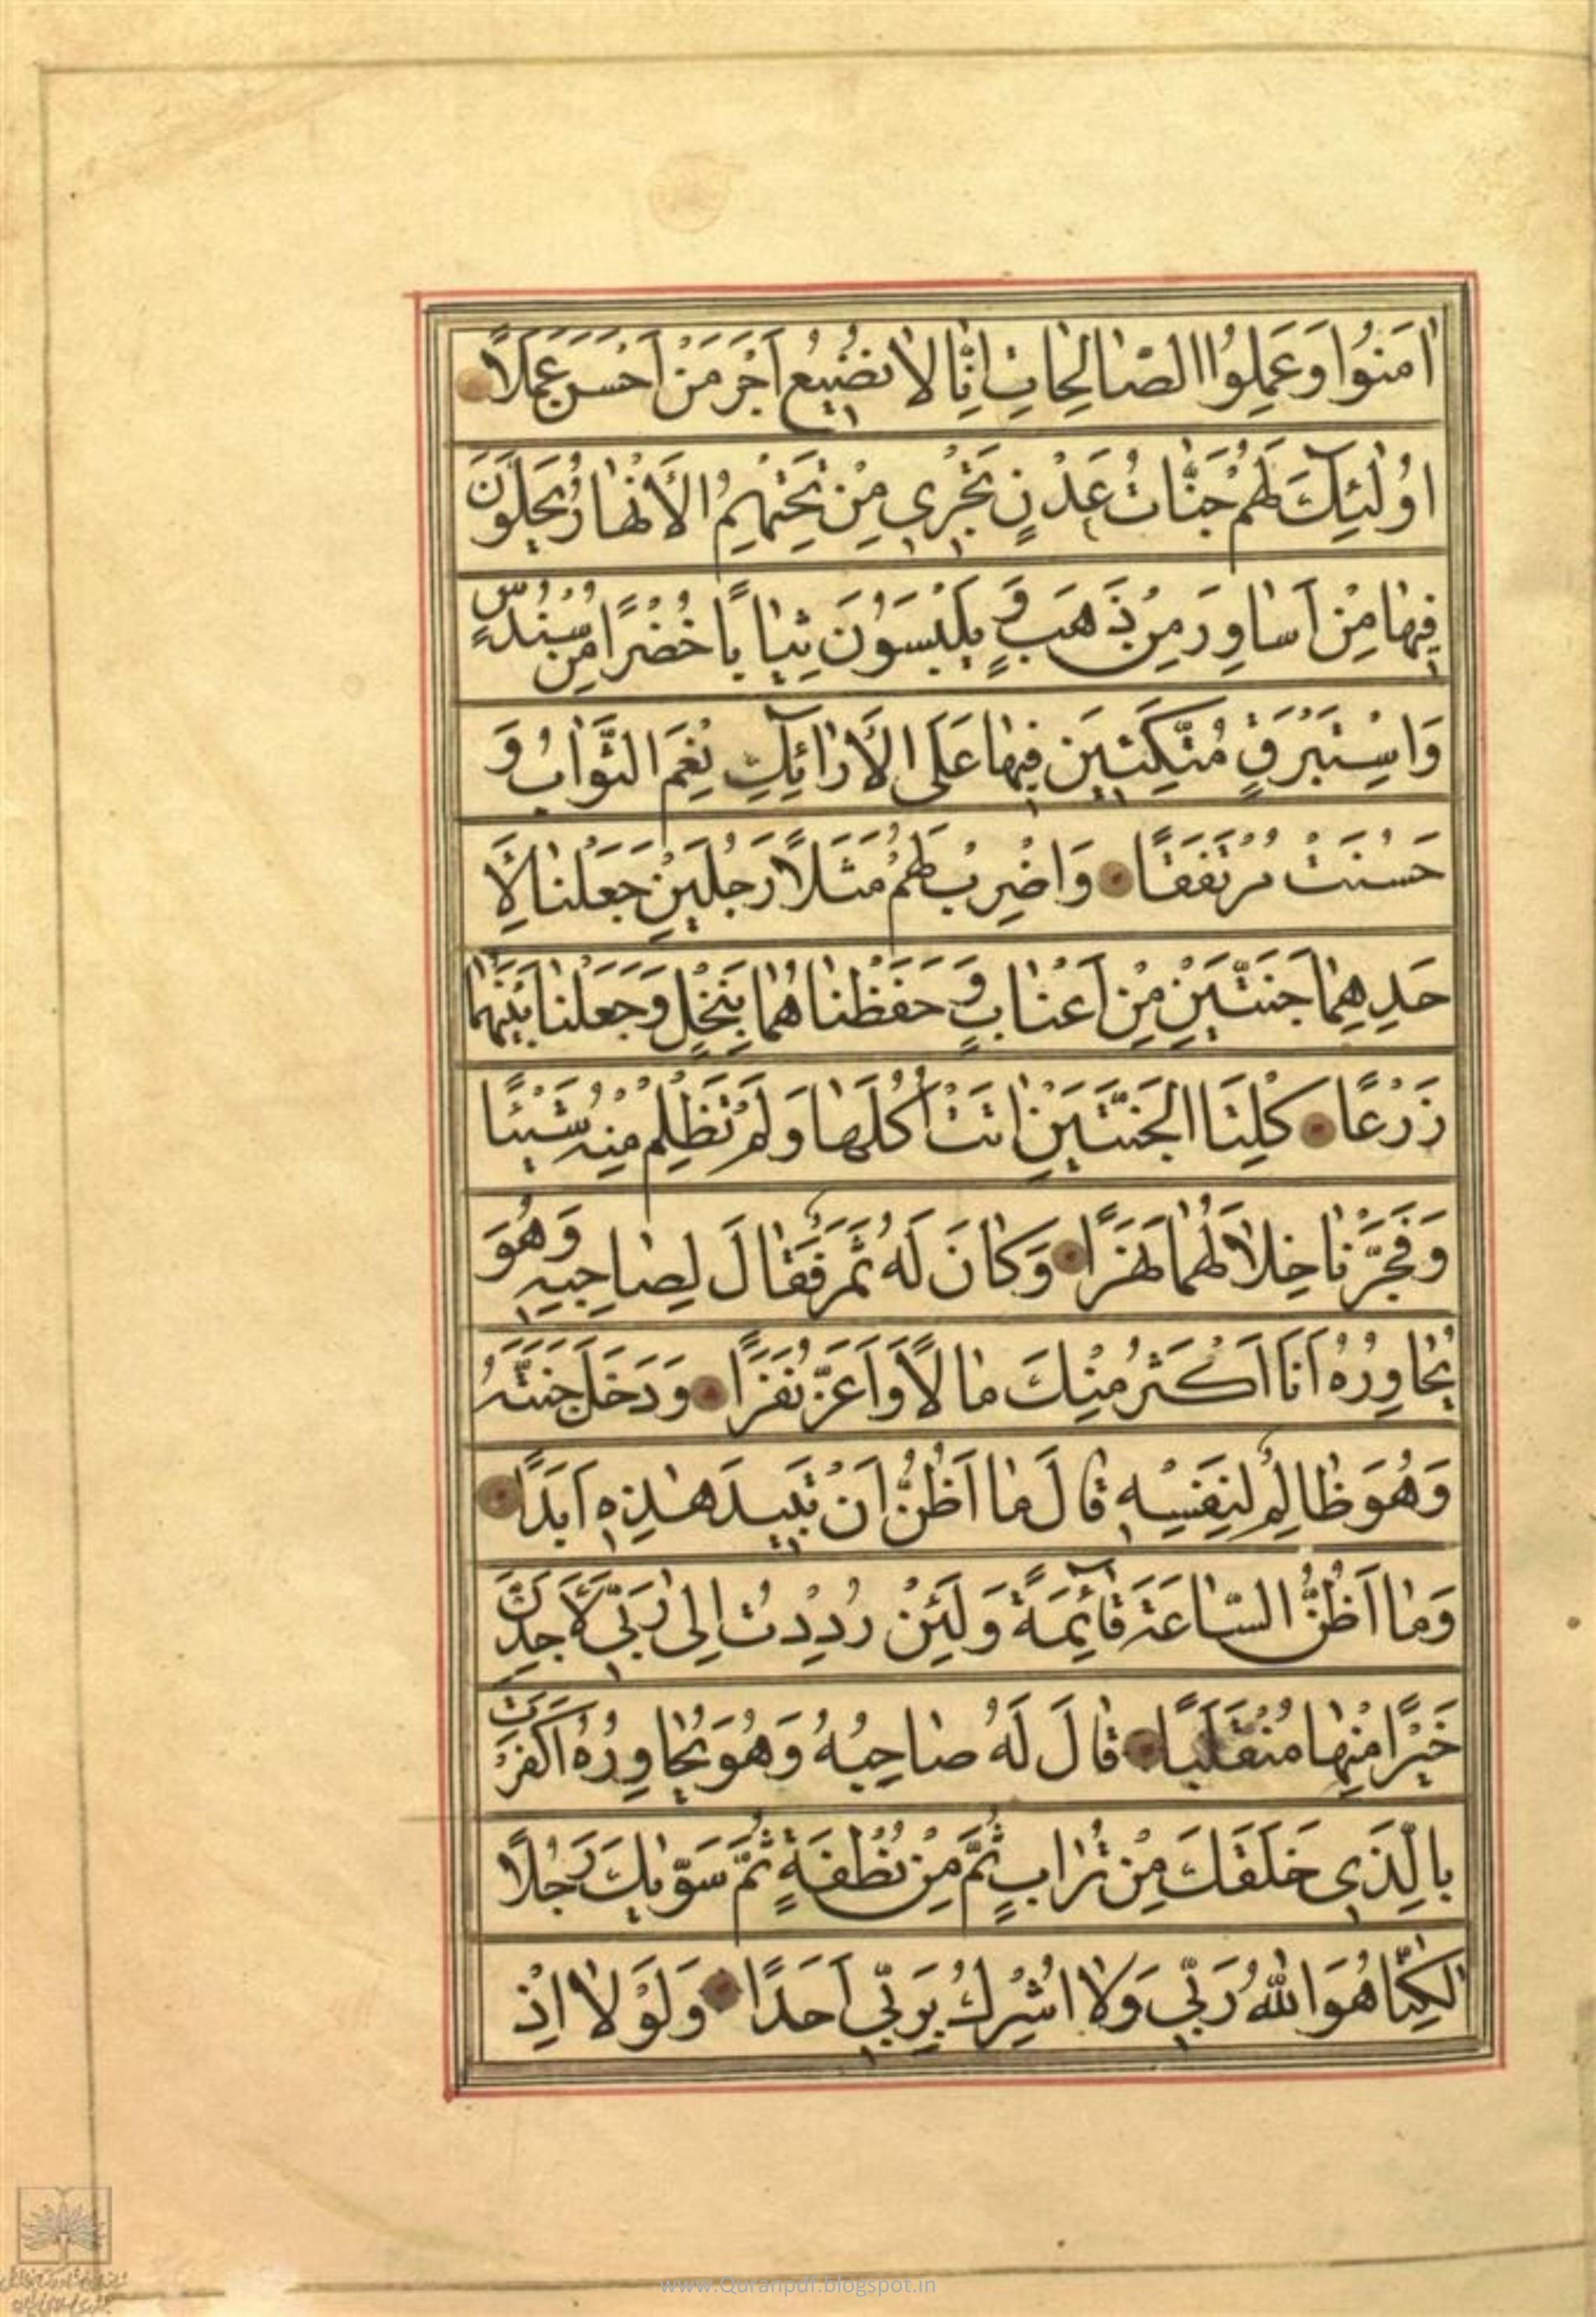 اٰمَنُوا وَعَمِلُوا الصّٰالِحٰاتِ اِنّٰا لٰا نُضٖيعُ اَجْرَ مَنْ اَحْسَنَ عَمَلًا
اُولٰئِٓكَ لَهُمْ جَنّٰاتُ عَدْنٍ تَجْرٖي مِنْ تَحْتِهِمُ الْاَنْهٰارُ يُحَلَّوْنَ
فٖيهٰا مِنْ اَسٰاوِرَ مِنْ ذَهَبٍ وَّ يَلْبَسُونَ ثِيٰابًا خُضْرًا مِنْ سُنْدُسٍ
وَاِسْتَبْرَقٍ مُتَّكِئٖينَ فٖيهٰا عَلَى الْاَرٰائِٓكِ نِعْمَ الثَّوٰابُ وَ
حَسُنَتْ مُرْتَفَقًا وَاضْرِبْ لَهُمْ مَثَلًا رَجُلَيْنِ جَعَلْنٰا لِاَ
حَدِهِمٰا جَنَّتَيْنِ مِنْ اَعْنٰابٍ وَّ حَفَفْنٰاهُمٰا بِنَخْلٍ وَجَعَلْنٰا بَيْنَهُمٰا
زَرْعًا كِلْتَا الْجَنَّتَيْنِ اٰتَتْ اُكُلَهٰا وَلَمْ تَظْلِمْ مِنْهُ شَيْئًا
وَفَجَّرْنٰا خِلٰالَهُمٰا نَهَرًا وَكٰانَ لَهُ ثَمَرٌ فَقٰالَ لِصٰاحِبِهٖ وَهُوَ
يُحٰاوِرُهُ اَنَا اَكْثَرُ مِنْكَ مٰالًا وَاَعَزُّ نَفَرًا وَدَخَلَ جَنَّتَهُ
وَهُوَ ظٰالِمٌ لِنَفْسِهٖ قٰالَ مٰا اَظُنُّ اَنْ تَبٖيدَ هٰذِهٖ اَبَدًا
وَمٰا اَظُنُّ السّٰاعَةَ قٰائِٓمَةً وَلَئِنْ رُدِدْتُ اِلٰى رَبّٖي لَاَجِدَنَّ
خَيْرًا مِنْهٰا مُنْقَلَبًا قٰالَ لَهُ صٰاحِبُهُ وَهُوَ يُحٰاوِرُهُ اَكَفَرْتَ
بِالَّذٖي خَلَقَكَ مِنْ تُرٰابٍ ثُمَّ مِنْ نُطْفَةٍ ثُمَّ سَوّٰيكَ رَجُلًا
لٰكِنَّا هُوَ اللّٰهُ رَبّٖي وَلٰا اُشْرِكُ بِرَبّٖي اَحَدًا وَلَوْلٰا اِذْ
www.Quranpdf.blogspot.in